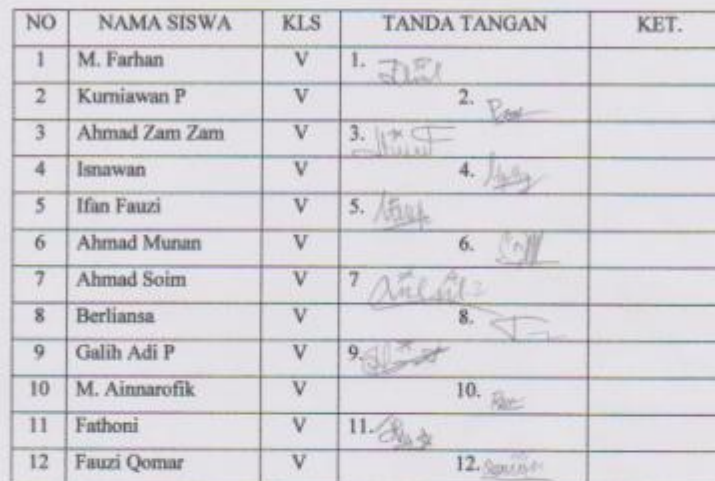 NO NAMA SISWA KLS TANDA TANGAN KET.
1 M. Farhan V 1.
2 Kurniawan P V 2.
3 Ahmad Zam Zam V 3.
4 Isnawan V 4.
5 Ifan Fauzi V 5.
6 Ahmad Munan V 6.
7 Ahmad Soim V 7
8 Berliansa V 8.
9 Galih Adi P V 9.
10 M. Ainnarofik V 10.
11 Fathoni V 11.
12 Fauzi Qomar V 12.